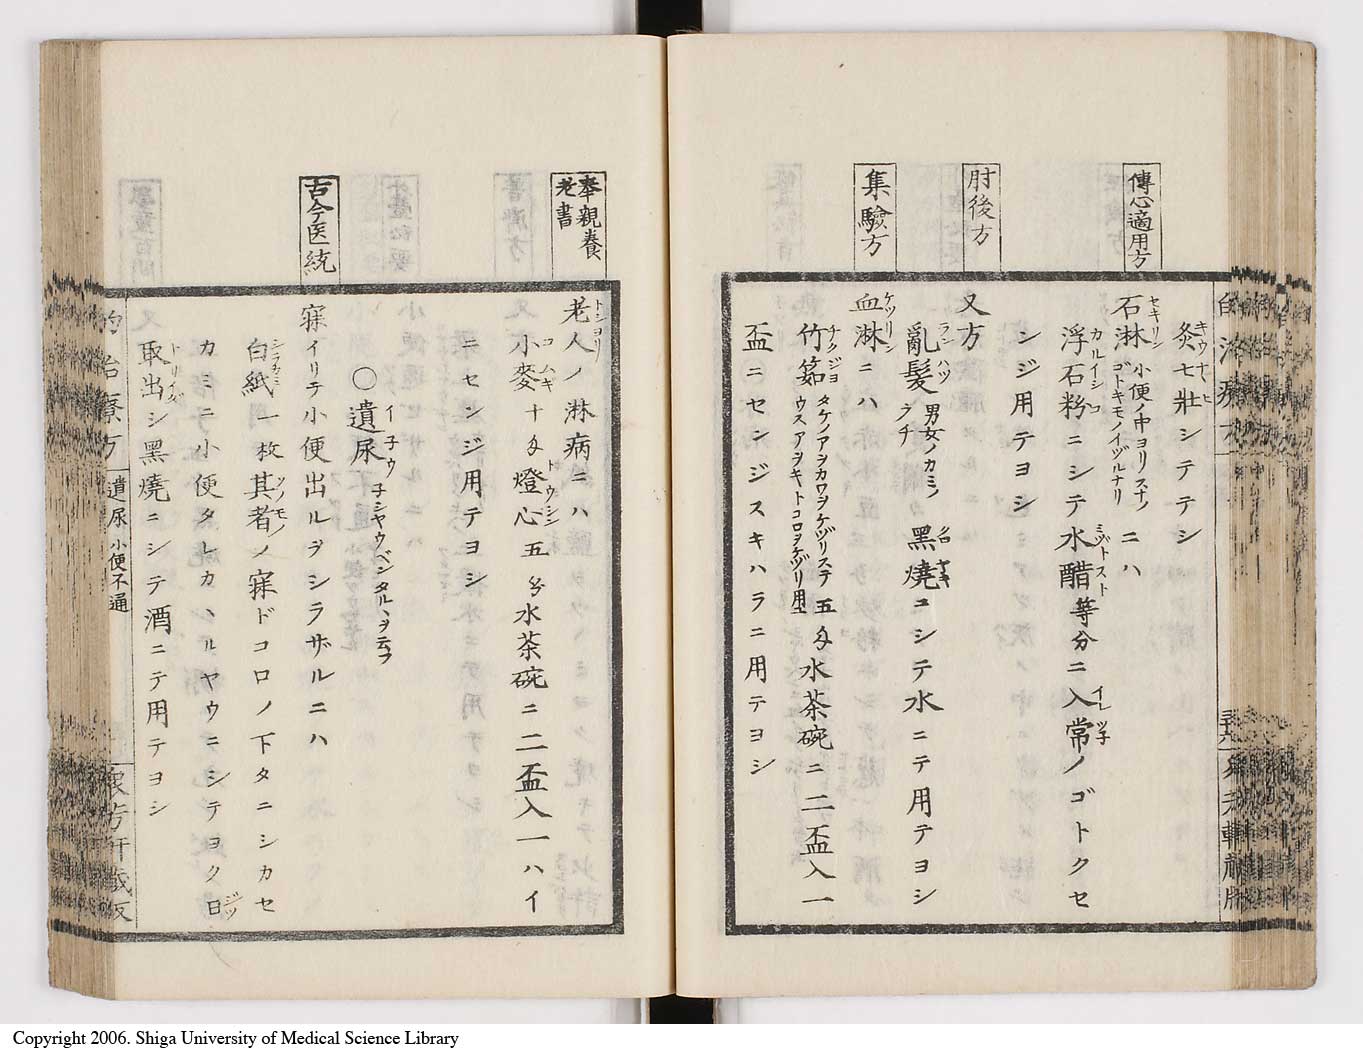 傳心適用方
肘後方
集驗方
灸七壯シテテシ
石淋小便ノ中ヨリスナノゴトキモノイヅルナリニハ
浮石粉ニシテ水醋等分ニ入常ノゴトクセ
ンジ用テヨシ
又方
亂髮男女ノカミノヲチ黑燒ニシテ水ニテ用テヨシ
血淋ニハ
竹筎タケノアヲカワヲケヅリステウスアヲキトコロヲケヅリ用ユ五匁水茶碗ニ二盃入一
盃ニセンジスキハラニ用テヨシ
奉親養老書
古今医統
老人ノ淋病ニハ
小麥十匁燈心五分水茶碗ニ二盃入一ハイ
ニセンジ用テヨシ
〇遺尿子シヤウベンタルヽヲ云フ
寐イリテ小便出ルヲシラザルニハ
白紙一枚其者ノ寐ドコロノ下タニシカセ
カミニ小便タレカヽルヤウニシテヨク日
取出シ黑燒ニシテ酒ニテ用テヨシ
遺尿 小便不通
Copyright 2006. Shiga University of Medical Science Library